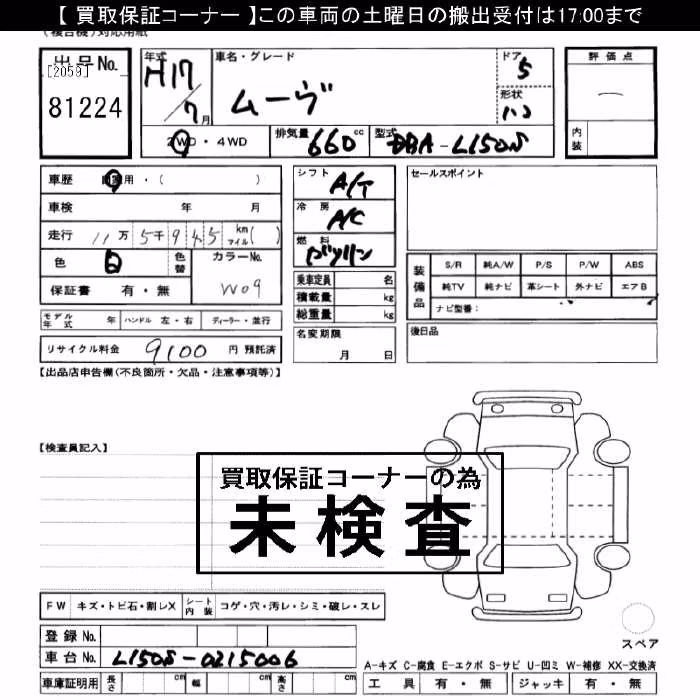 【 買取保証コーナー 】この車両の土曜日の搬出受付は17:00まで
(複合機)対応用紙
出品No.
[2059]
81224
年式
H17
/7月
車名・グレード
ムーヴ
ドア
5
形状
ハコ
評価点
内装
2WD・4WD
排気量 660 cc
型式 DBA-L150S
車歴 自家用・( )
車検 年 月
走行 11万5千945 km マイル( )
色 白 色替
カラーNo.
W09
保証書 有・無
シフト A/T
冷房 A/C
燃料 ガソリン
乗車定員 名
積載量 kg
総重量 kg
名変期限
月 日
セールスポイント
装備品
S/R 純A/W P/S P/W ABS
純TV 純ナビ 革シート 外ナビ エアB
ナビ型番:
後日品
モデル年式 年 ハンドル 左・右 ディーラー・並行
リサイクル料金 9100 円 預託済
【出品店申告欄(不良箇所・欠品・注意事項等)】
【検査員記入】
買取保証コーナーの為
未検査
FW キズ・トビ石・割レX シート内装 コゲ・穴・汚レ・シミ・破レ・スレ
スペア
登録No.
車台No. L150S-0215006
車庫証明用 長さ cm 幅 cm 高さ cm
A-キズ C-腐食 E-エクボ S-サビ U-凹ミ W-補修 XX-交換済
工具 有・無 ジャッキ 有・無